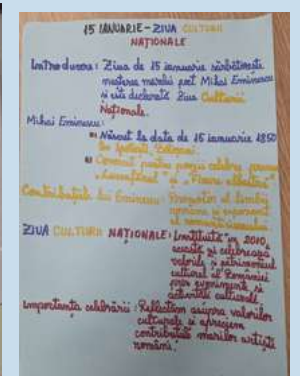 15 IANUARIE - ZIUA CULTURII
NAȚIONALE
Introducere: Ziua de 15 ianuarie sărbătorește
nașterea marelui poet Mihai Eminescu
și este declarată Ziua Culturii
Naționale.
Mihai Eminescu:
Născut la data de 15 ianuarie 1850
în Ipotești, Botoșani.
Cunoscut pentru poezii celebre precum
„Luceafărul" și „Floare albastră"
Contribuțiile lui Eminescu: Promotor al limbii
române și exponent
al romantismului
ZIUA CULTURII NAȚIONALE: Instituită în 2010,
această zi celebrează
valorile și patrimoniul
cultural al României
prin evenimente și
activități culturale.
Importanța celebrării: Reflectăm asupra valorilor
culturale și apreciem
contribuțiile marilor artiști
români.